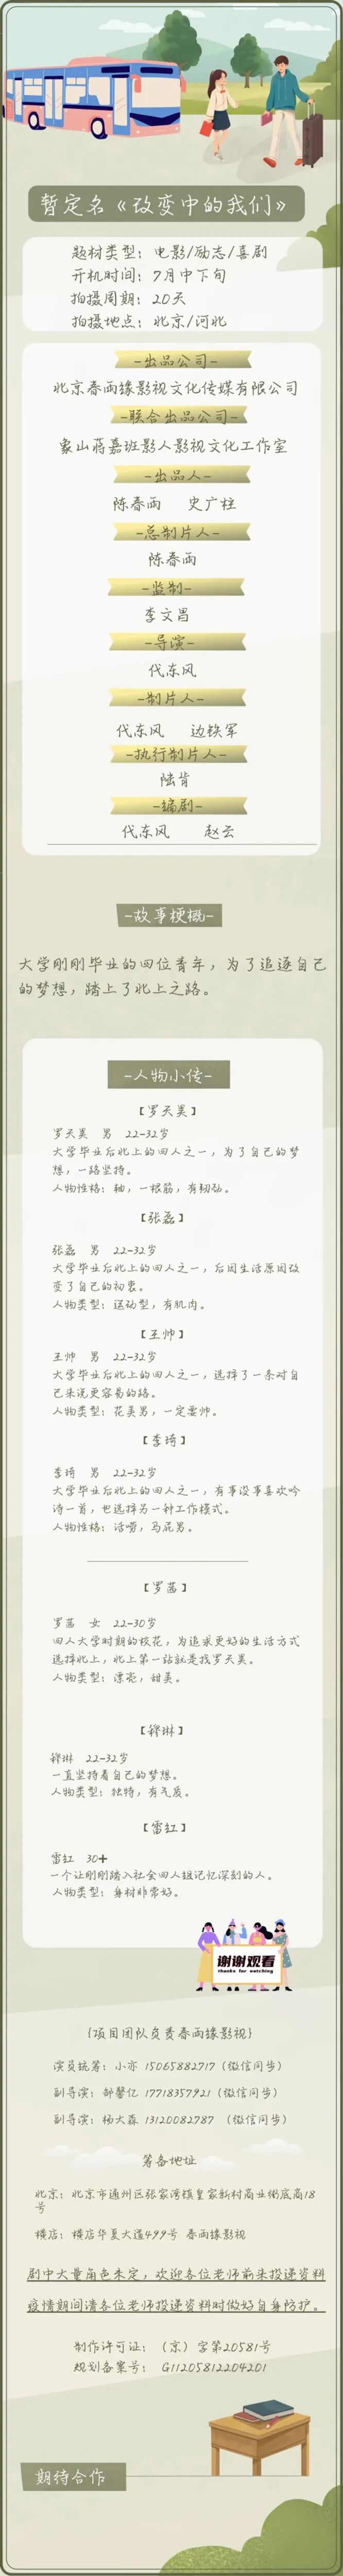 暂定名《改变中的我们》
题材类型：电影/励志/喜剧
开机时间：7月中下旬
拍摄周期：20天
拍摄地点：北京/河北
-出品公司-
北京春雨缘影视文化传媒有限公司
-联合出品公司-
象山蒋嘉班影人影视文化工作室
-出品人-
陈春雨 史广柱
-总制片人-
陈春雨
-监制-
李文昌
-导演-
代东风
-制片人-
代东风 边铁军
-执行制片人-
陆肯
-编剧-
代东风 赵云
-故事梗概-
大学刚刚毕业的四位青年，为了追逐自己
的梦想，踏上了北上之路。
-人物小传-
【罗天昊】
罗天昊 男 22-32岁
大学毕业后北上的四人之一，为了自己的梦
想，一路坚持。
人物性格：轴，一根筋，有韧劲。
【张磊】
张磊 男 22-32岁
大学毕业后北上的四人之一，后因生活原因改
变了自己的初衷。
人物类型：运动型，有肌肉。
【王帅】
王帅 男 22-32岁
大学毕业后北上的四人之一，选择了一条对自
己来说更容易的路。
人物类型：花美男，一定要帅。
【李琦】
李琦 男 22-32岁
大学毕业后北上的四人之一，有事没事喜欢吟
诗一首，也选择另一种工作模式。
人物性格：话唠，马屁男。
【罗茜】
罗茜 女 22-30岁
四人大学时期的校花，为追求更好的生活方式
选择北上，北上第一站就是找罗天昊。
人物类型：漂亮，甜美。
【穆琳】
穆琳 22-32岁
一直坚持着自己的梦想。
人物类型：独特，有气质。
【雷红】
雷红 30+
一个让刚刚踏入社会四人组记忆深刻的人。
人物类型：身材非常好。
谢谢观看
thanks for watching
{项目团队负责春雨缘影视}
演员统筹：小亦 15065882717（微信同步）
副导演：郜馨亿 17718357921（微信同步）
副导演：杨大森 13120082787 （微信同步）
筹备地址
北京：北京市通州区张家湾镇皇家新村商业街底商18
号
横店：横店华夏大道499号 春雨缘影视
剧中大量角色未定，欢迎各位老师前来投递资料
疫情期间请各位老师投递资料时做好自身防护。
制作许可证：（京）字第20581号
规划备案号： G11205812204201
期待合作